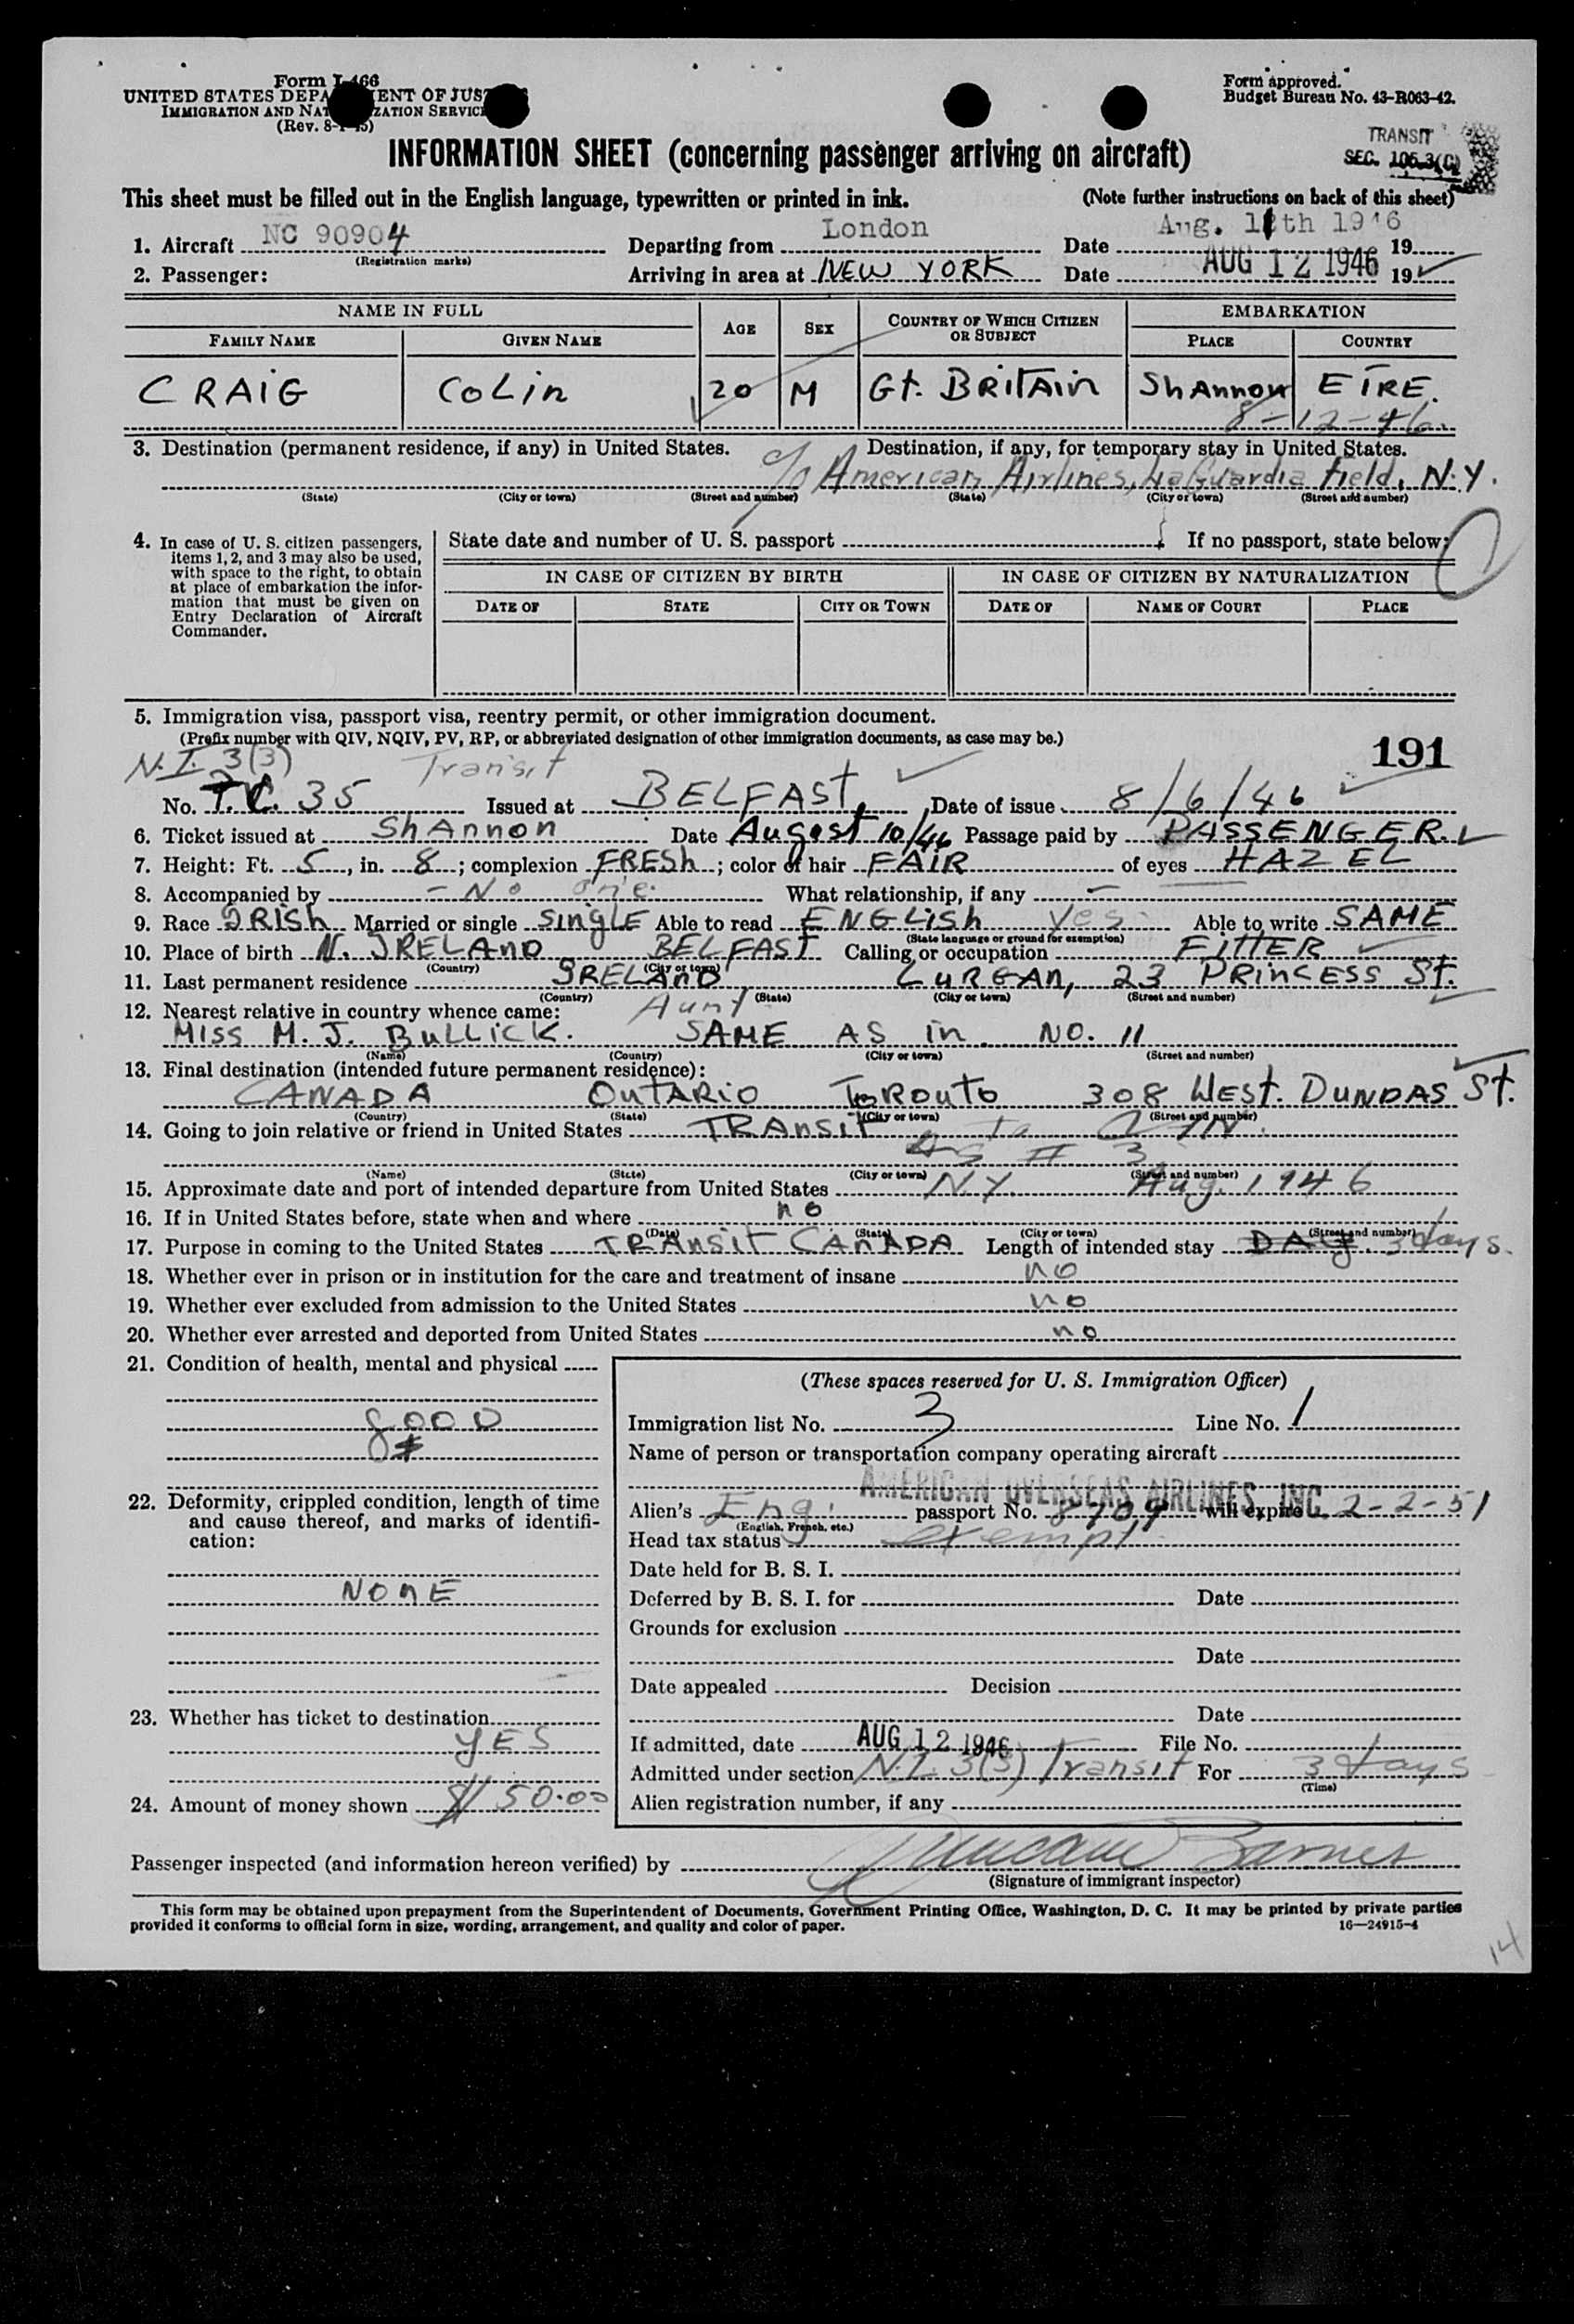 Form I-466
UNITED STATES DEPARTMENT OF JUSTICE
IMMIGRATION AND NATURALIZATION SERVICE
(Rev. 8-1-45)
Form approved.
Budget Bureau No. 43-R063-42.
TRANSIT
SEC. 106.3(C)
INFORMATION SHEET (concerning passenger arriving on aircraft)
This sheet must be filled out in the English language, typewritten or printed in ink. (Note further instructions on back of this sheet)
1. Aircraft NC 90904 Departing from London Date Aug. 11th 1946 19
(Registration marks)
2. Passenger: Arriving in area at NEW YORK Date AUG 12 1946 19
NAME IN FULL AGE SEX COUNTRY OF WHICH CITIZEN OR SUBJECT EMBARKATION
FAMILY NAME GIVEN NAME PLACE COUNTRY
CRAIG COLin 20 M Gt. BRITAin ShAnnon EIRE.
8-12-46.
3. Destination (permanent residence, if any) in United States. Destination, if any, for temporary stay in United States.
c/o American Airlines, LaGuardia Field, N.Y.
(State) (City or town) (Street and number) (State) (City or town) (Street and number)
4. In case of U. S. citizen passengers, items 1, 2, and 3 may also be used, with space to the right, to obtain at place of embarkation the information that must be given on Entry Declaration of Aircraft Commander.
State date and number of U. S. passport ; If no passport, state below:
IN CASE OF CITIZEN BY BIRTH IN CASE OF CITIZEN BY NATURALIZATION
DATE OF STATE CITY OR TOWN DATE OF NAME OF COURT PLACE
5. Immigration visa, passport visa, reentry permit, or other immigration document.
(Prefix number with QIV, NQIV, PV, RP, or abbreviated designation of other immigration documents, as case may be.)
191
N.I. 3(3) Transit
No. T.C. 35 Issued at BELFAST, Date of issue 8/6/46
6. Ticket issued at ShAnnon Date August 10/46 Passage paid by PASSENGER.
7. Height: Ft. 5, in. 8; complexion FRESh; color of hair FAIR of eyes HAZEL
8. Accompanied by - No one. What relationship, if any -
9. Race IRISh Married or single SingLE Able to read ENGLish Yes Able to write SAME
(State language or ground for exemption)
10. Place of birth N. IRELAND BELFAST Calling or occupation FITTER
(Country) (City or town)
11. Last permanent residence IRELAND LURGAN, 23 PRINCESS St.
(Country) (State) (City or town) (Street and number)
12. Nearest relative in country whence came: Aunt
MISS M. J. BULLICK. SAME AS in NO. 11
(Name) (Country) (City or town) (Street and number)
13. Final destination (intended future permanent residence):
CANADA OntARIO ToRonto 308 WEST. DUNDAS St.
(Country) (State) (City or town) (Street and number)
14. Going to join relative or friend in United States TRAnsit
As # 3
(Name) (State) (City or town) (Street and number)
15. Approximate date and port of intended departure from United States N.Y. Aug. 1946
16. If in United States before, state when and where no
(Date) (State) (City or town) (Street and number)
17. Purpose in coming to the United States TRAnsit CANADA Length of intended stay DAY. 3 days.
18. Whether ever in prison or in institution for the care and treatment of insane no
19. Whether ever excluded from admission to the United States no
20. Whether ever arrested and deported from United States no
21. Condition of health, mental and physical
gOOD
22. Deformity, crippled condition, length of time and cause thereof, and marks of identification:
NOnE
23. Whether has ticket to destination
YES
24. Amount of money shown $150.00
(These spaces reserved for U. S. Immigration Officer)
Immigration list No. 3 Line No. 1
Name of person or transportation company operating aircraft
AMERICAN OVERSEAS AIRLINES, INC.
Alien's Eng. passport No. 8709 will expire 2-2-51
(English, French, etc.)
Head tax status exempt
Date held for B. S. I.
Deferred by B. S. I. for Date
Grounds for exclusion
Date
Date appealed Decision
Date
If admitted, date AUG 12 1946 File No.
Admitted under section N.I. 3(3) Transit For 3 days
(Time)
Alien registration number, if any
Passenger inspected (and information hereon verified) by Duncan Barnes
(Signature of immigrant inspector)
This form may be obtained upon prepayment from the Superintendent of Documents, Government Printing Office, Washington, D. C. It may be printed by private parties
provided it conforms to official form in size, wording, arrangement, and quality and color of paper. 16—24915-4
14